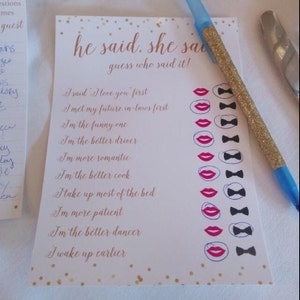 he said, she sa
guess who said it!
I said "I love you" first
I met my future in laws first
I'm the funny one
I'm the better driver
I'm more romantic
I'm the better cook
I take up most of the bed
I'm more patient
I'm the better dancer
I wake up earlier